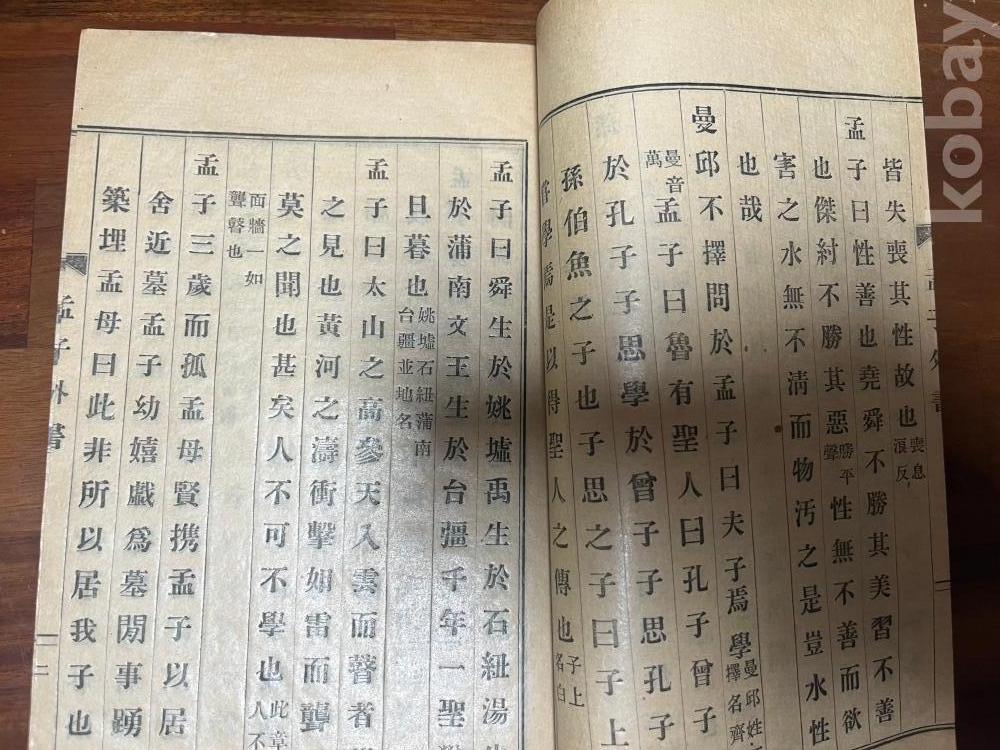 皆失喪其性故也喪息浪反
孟子曰性善也堯舜不勝其美習不善
也傑紂不勝其惡勝平聲性無不善而欲
害之水無不清而物汚之是豈水性
也哉
曼邱不擇問於孟子曰夫子焉學曼邱姓擇名齊
曼音萬孟子曰魯有聖人曰孔子曾子
於孔子子思學於曾子子思孔子
孫伯魚之子也子思之子曰子上
學焉是以得聖人之傳也子上名白
孟子外書
二
孟子曰舜生於姚墟禹生於石紐湯
於蒲南文王生於台疆千年一聖
旦暮也姚墟石紐蒲南台疆並地名
孟子曰太山之高參天入雲而瞽者
之見也黃河之濤衝擊如雷而聾
莫之聞也甚矣人不可不學也此章人不
面牆一如聾瞽也
孟子三歲而孤孟母賢携孟子以居
舍近墓孟子幼嬉戲為墓間事踴
築埋孟母曰此非所以居我子也
孟子外書
二
kobay